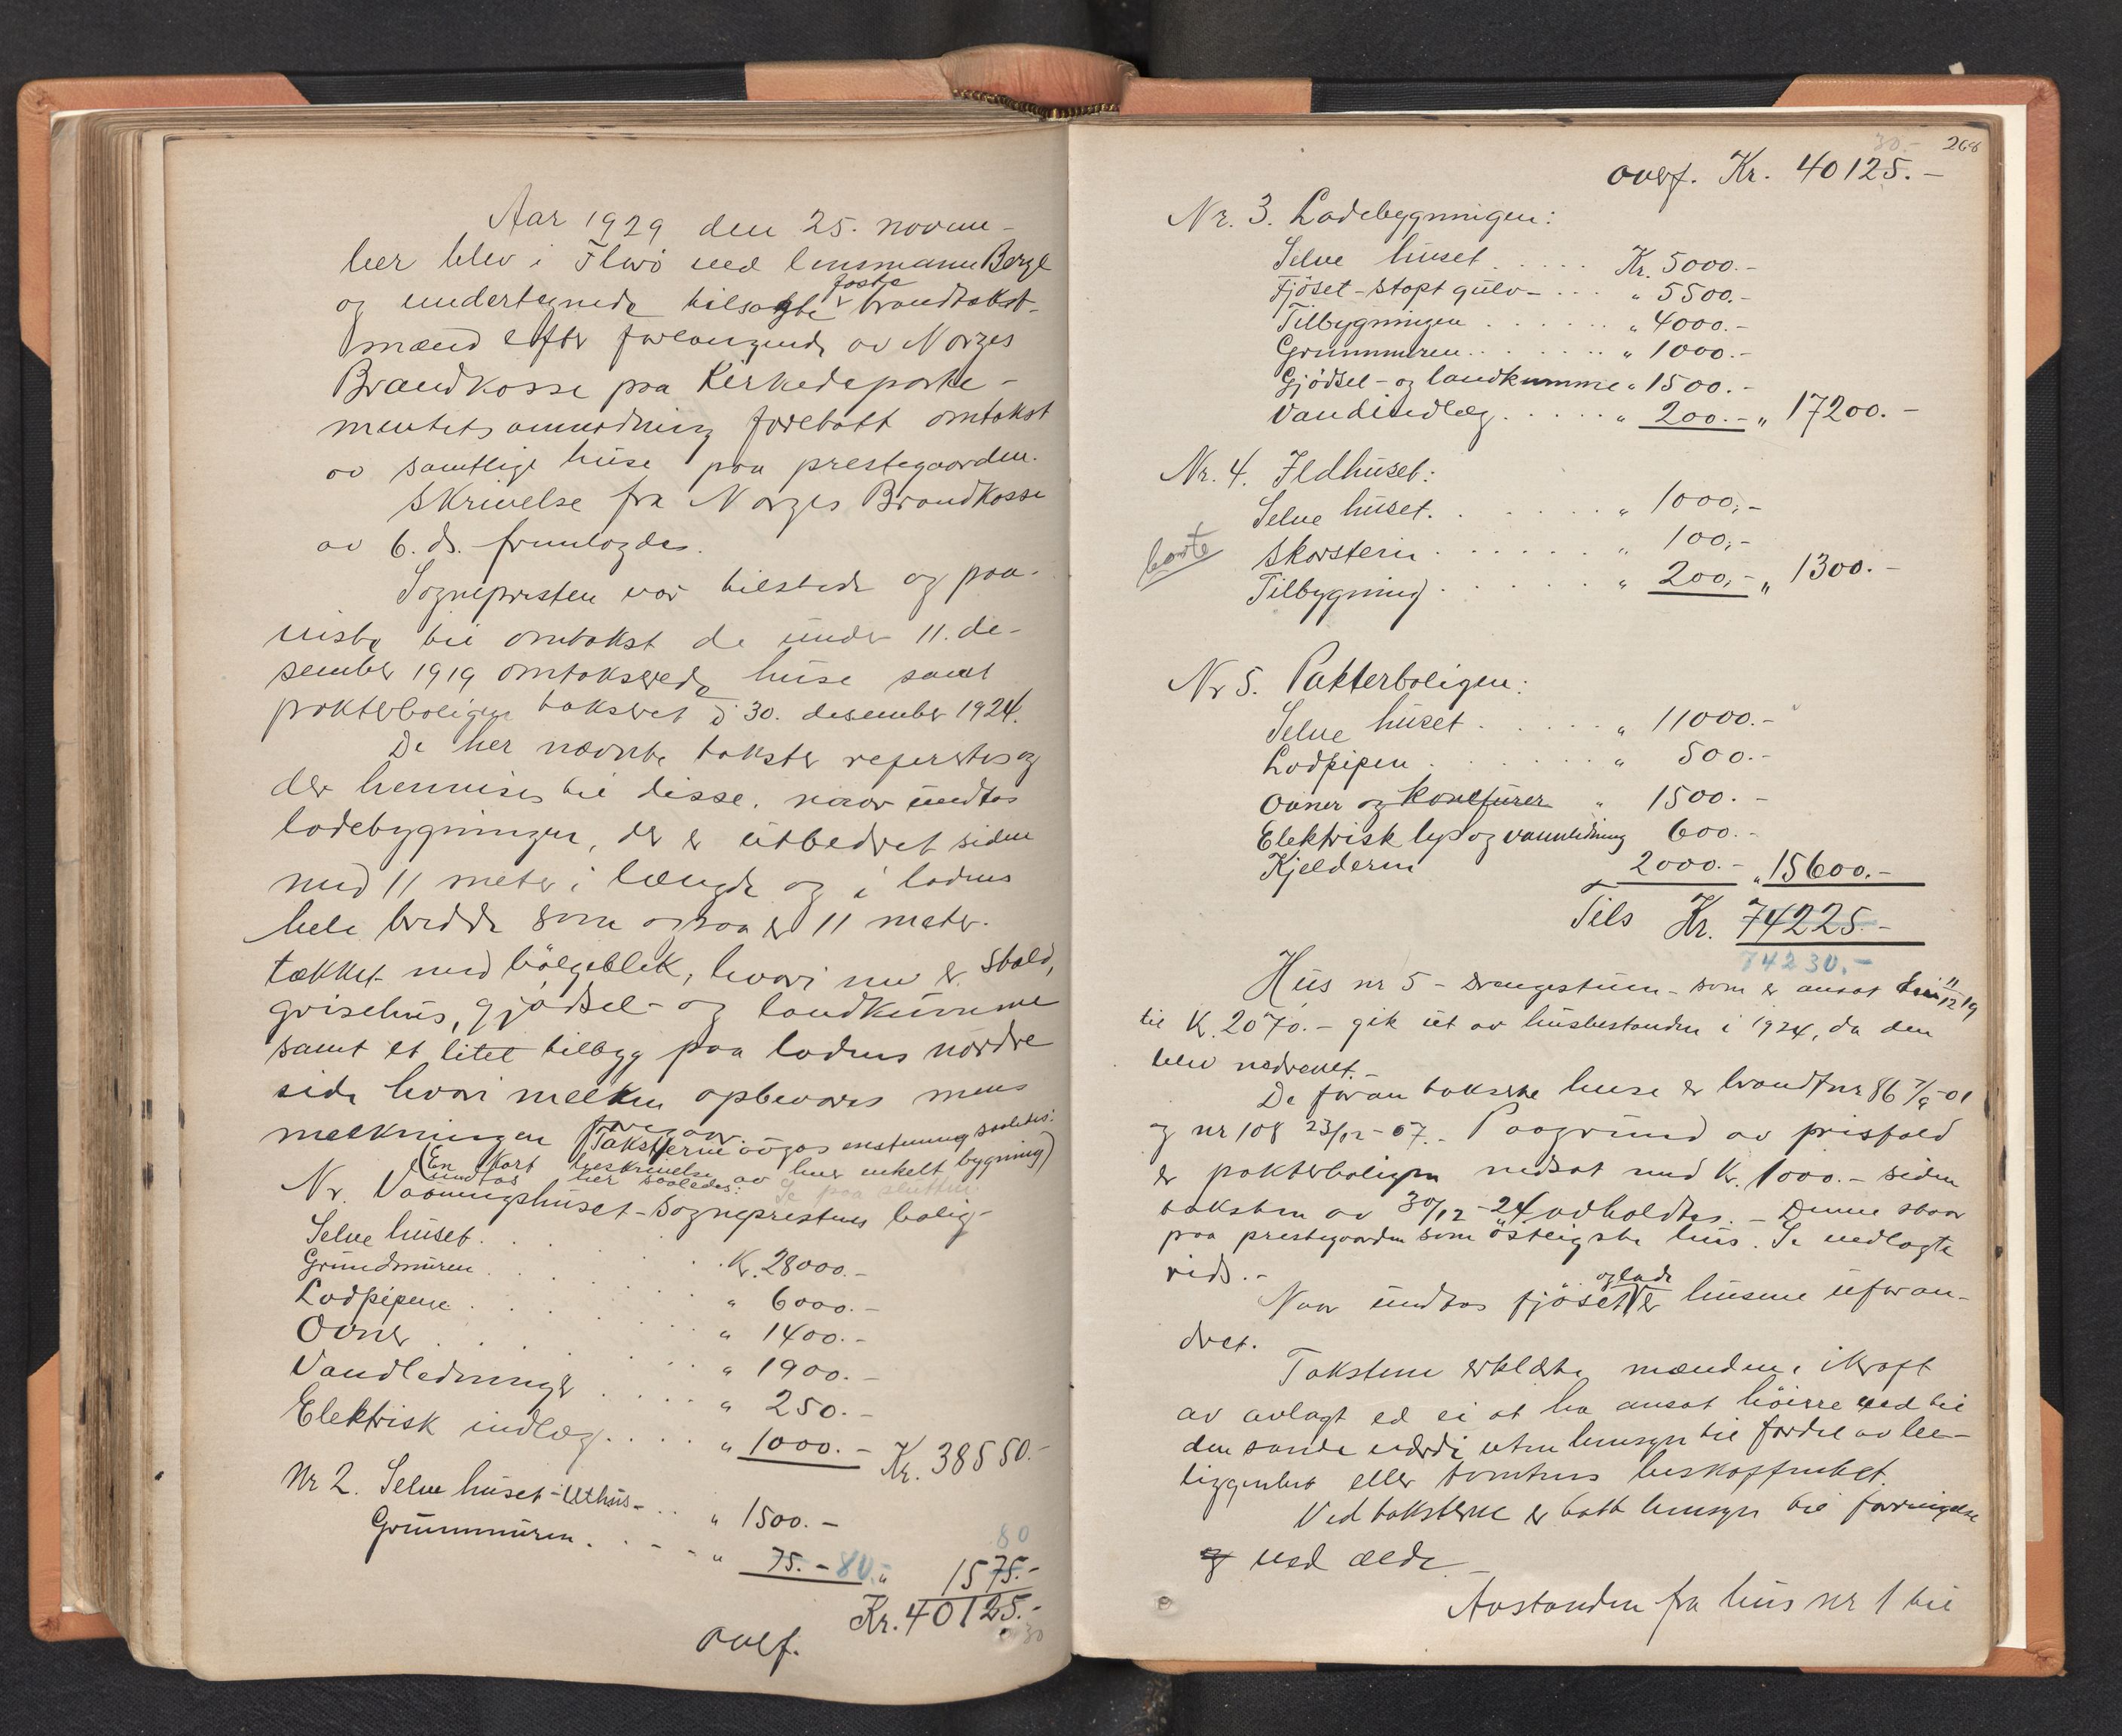 Aar 1929 den 25. novem-
ber blev i Flerö ved lensmann Berge
og undertegnede tilsagte faste brandtakst-
mænd efter forlangende av Norges
Brandkasse paa Kirkedeparte-
mentets anmodning foretatt omtakst
av samtlige huse paa prestegaarden.
Skrivelse fra Norges Brandkasse
av 6. ds. fremlagdes.
Sognepresten var tilstede og paa-
viste til omtakst de under 11. de-
sember 1919 omtakserede huse samt
pakterboligen taksert d. 30. desember 1924.
De her nævnte takster refereres og
der henvises til disse, naar undtas
ladebygningen, der er utbedret siden
med 11 meter i længde og i ladens
hele bredde som ogsaa er 11 meter.
tækket med bölgeblek, hvori nu er stald,
grisehus, gjødsel- og landkumme
samt et litet tilbygg paa ladens nordre
side hvori melken opbevares mens
melkningen foregaar. Taksterne avgas enstemmig saaledes:
(En kort beskrivelse av hver enkelt bygning)
undtas her saaledes: Se paa slutten
Nr. Vaaningshuset - Sogneprestens bolig -
Selve huset . . . Kr. 28000.-
Grundmuren . . . " 6000.-
Lodpipene . . . " 1400.-
Ovner . . . " 1900.-
Vandledninger . . . " 250.-
Elektrisk indlæg . . . " 1000.- Kr. 38550.-
Nr 2. Selve huset - Uthus - . . " 1500.-
80
Grunnmuren . . . " 75.- 80.- " 1575.-
Kr. 40125.-
30
overf.
30.- 268
overf. Kr. 40125.-
Nr. 3. Ladebygningen:
Selve huset . . . . . Kr. 5000.-
Fjöset - støpt gulv - . . . " 5500.-
Tilbygningen . . . . . . " 4000.-
Grunnmuren . . . . . . " 1000.-
Gjödsel - og landkumme " 1500.-
Vandindlæg . . . . . " 200.- " 17200.-
Nr. 4. Ildhuset:
Selve huset . . . . . " 1000,-
borte Skorstein . . . . . . " 100,-
Tilbygning . . . . . " 200,- " 1300.-
Nr 5. Pakterboligen:
Selve huset . . . . . " 11000.-
Lodpipen . . . . . . " 500.-
Ovner og komfurer " 1500.-
Elektrisk lys og vannledning 600.-
Kjelderen 2000.- " 15600.-
Tils Kr. 74225.-
74230.-
Hus nr 5 - drengestuen - som er ansat den 11/12 19
til Kr. 2070.- gik ut av husbestanden i 1924, da den
blev nedrevet.-
De foran takserte huse er brandf nr 86 7/9-01
og nr 108 23/12-07.- Paagrund av prisfald
er pakterboligen nedsat med Kr. 1000.- siden
taksten av 30/12-24 avholdtes.- Denne staar
paa prestegaarden som östligste hus. Se vedlagte
rids.-
Naar undtas fjöset og lade er husene uforan-
dret.
Takstene erklærte mændene i kraft
av avlagt ed ei at ha ansat höiere end til
den sande værdi uten hensyn til fordel av be-
liggenhet eller tomtens beskaffenhet.
Ved taksterne er tatt hensyn til forringelse
og ved ælde.-
Avstanden fra hus nr 1 til